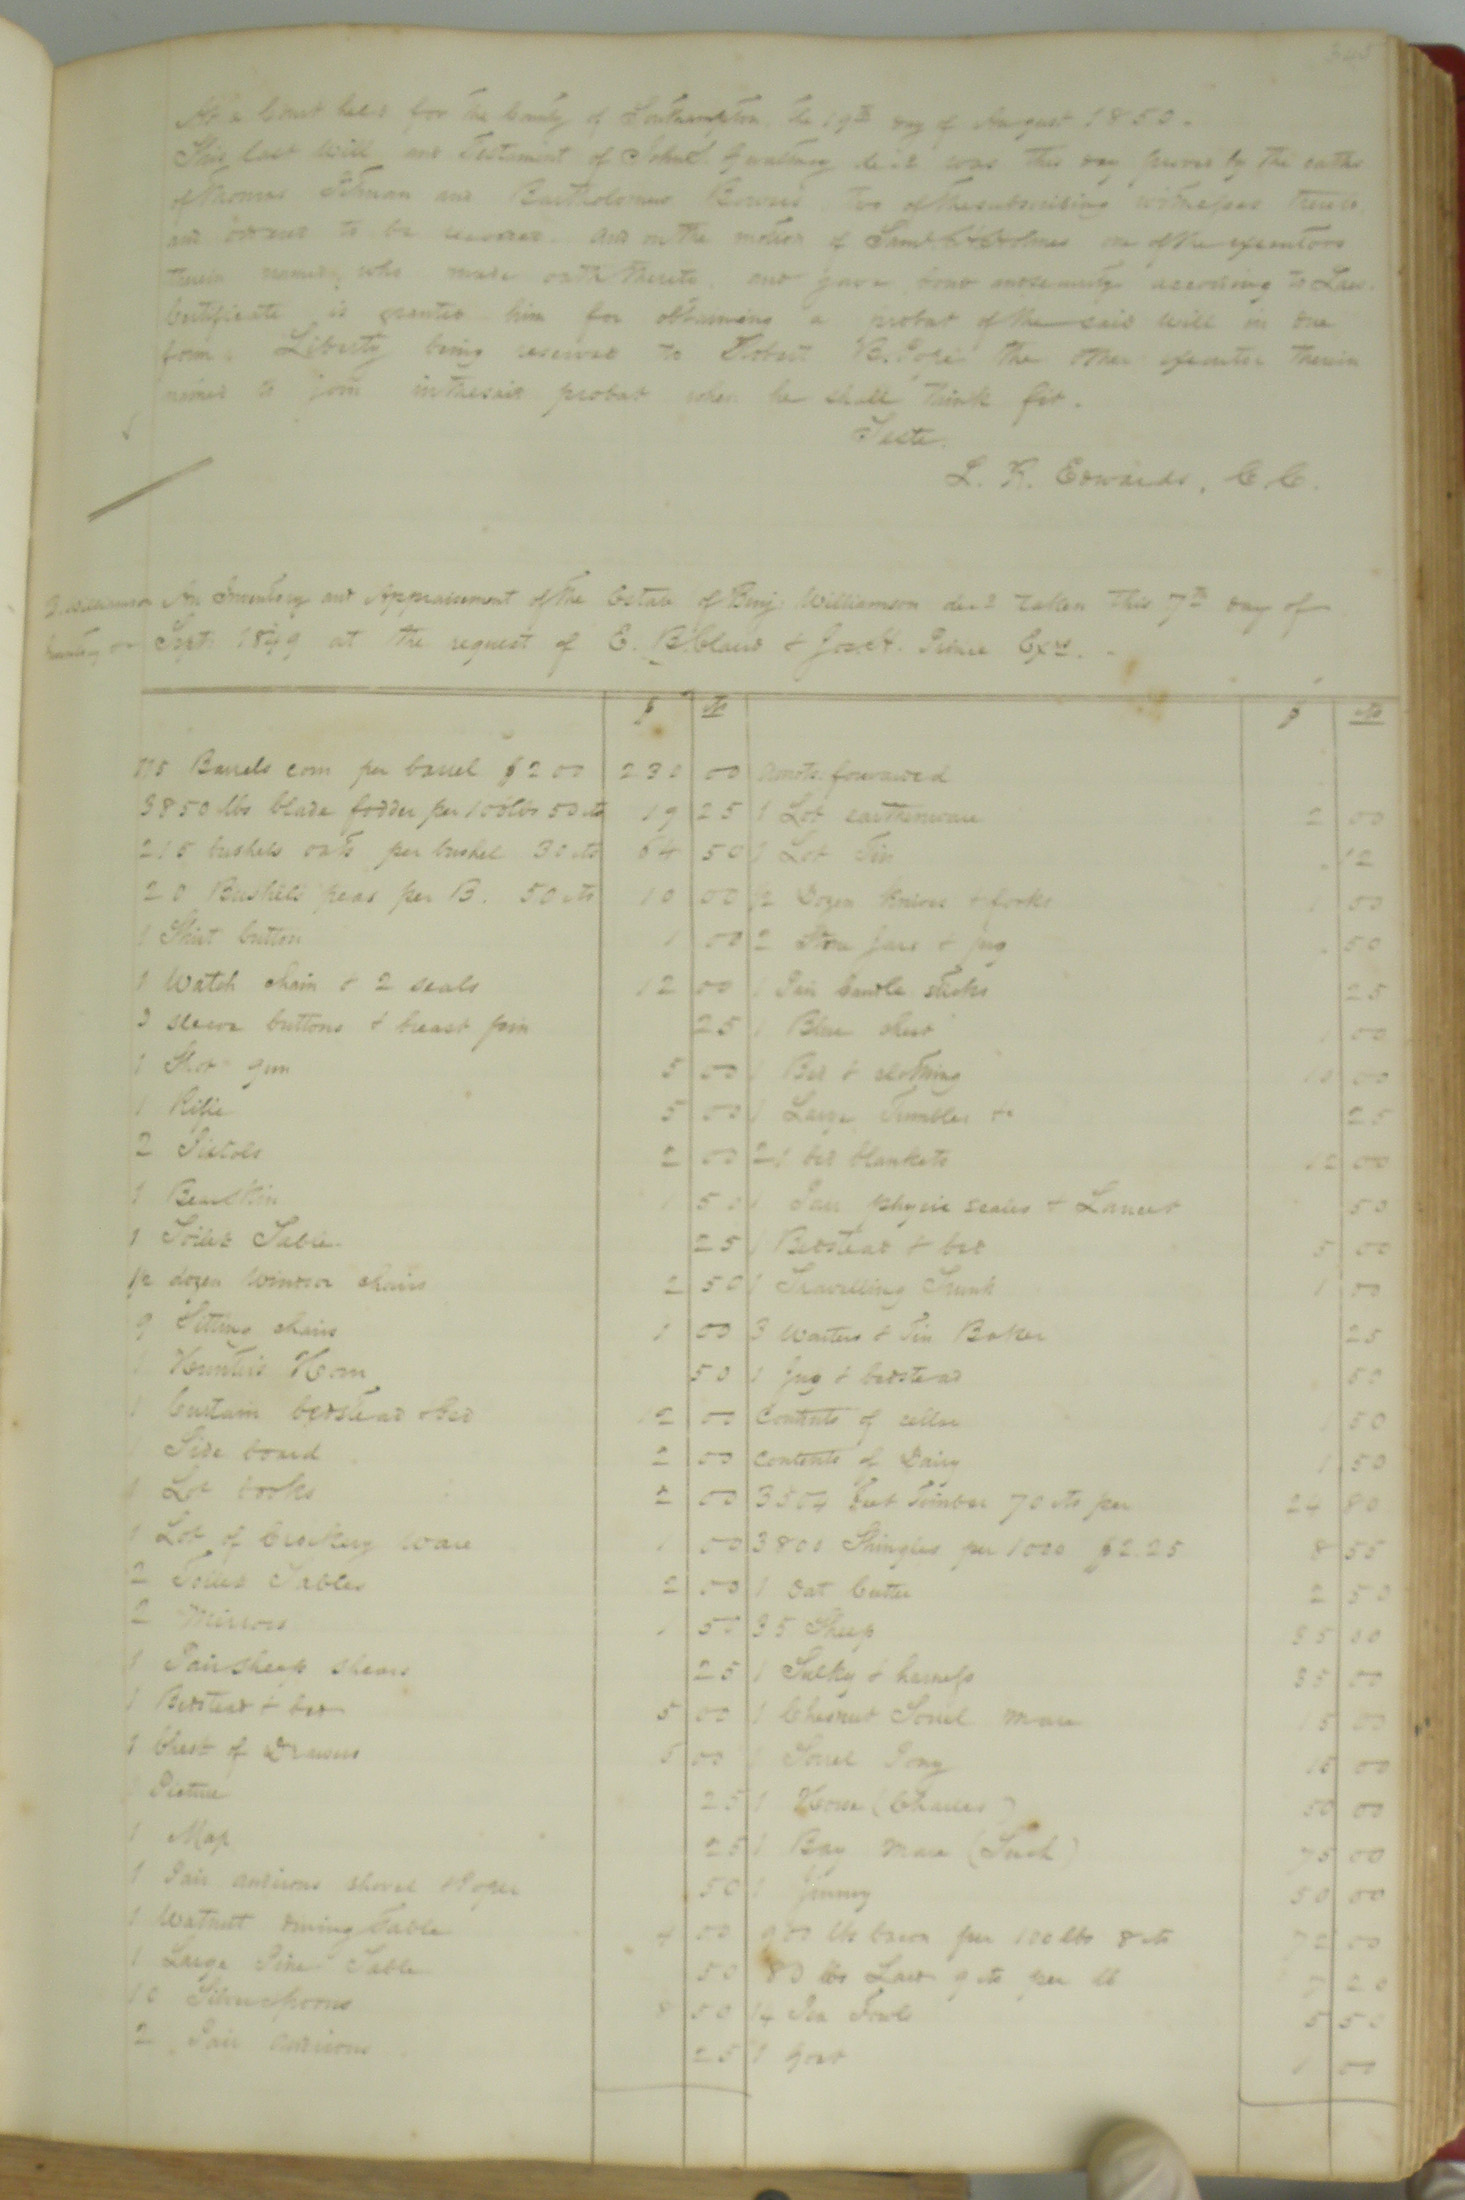 345
At a Court held for the County of Southampton the 19th day of August 1850.
This last Will and Testament of John S. Gwaltney dec.d was this day proved by the oaths
of Thomas Pitman and Bartholomew Bowers two of the subscribing witnesses thereto,
and ordered to be recorded. And on the motion of Saml. Holmes one of the executors
therein named, who made oath thereto, and gave bond and security according to Law.
Certificate is granted him for obtaining a probat of the said Will in due
form. Liberty being reserved to Robert B. Pope the other executor therein
named to join in the said probat when he shall think fit.
Teste.
L. R. Edwards, C.C.
B. Williamson
Inventory
An Inventory and Appraisement of the Estate of Benj. Williamson dec.d taken this 7th day of
Sept. 1849 at the request of E. & Jos. H. Prince Exrs.
$ cts
115 Barrels corn per barrel $2 00 230 00
3850 lbs blade fodder per 100 lbs 50 cts 19 25
215 bushels oats per bushel 30 cts 64 50
20 Bushels peas per B. 50 cts 10 00
1 Shirt button 1 00
1 Watch chain & 2 seals 12 00
3 sleeve buttons & breast pin 25
1 Shot gun 5 00
1 Rifle 5 00
2 Pistols 2 00
1 Bearskin 1 50
1 Toilet Table 25
1/2 dozen Windsor chairs 2 50
9 Sitting chairs 1 00
1 Hunters Horn 50
1 Curtain bedstead & bed 12 00
1 Side board 2 00
1 Lot books 2 00
1 Lot of Crockery Ware 1 00
2 Toilet Tables 2 00
2 Mirrors 1 50
1 Pair sheep shears 25
1 Bedstead & bed 5 00
1 Chest of Drawers 5 00
1 Picture 25
1 Map 25
1 Pair andirons shovel & 50
1 Walnutt dining Table 4 00
1 Large Pine Table 50
10 Silver spoons 8 50
2 Pair andirons 25
$ cts
Amots. forwarded
1 Lot earthenware 2 00
1 Lot Tin 12
1/2 Dozen Knives & forks 1 00
2 Stone Jars & jug 50
1 Pair Candle sticks 25
1 Blue chest 1 00
1 Bed & clothing 10 00
1 Large Tumbler &c 25
21 bed blankets 12 00
1 Pair physic scales & Lancet 50
1 Bedstead & bed 5 00
1 Travelling Trunk 1 00
3 Waiters & Tin Baker 25
1 Jug & bedstead 50
Contents of cellar 1 50
Contents of Dairy 1 50
3504 feet Timber 70 cts per 24 80
3800 Shingles per 1000 $2.25 8 55
1 Oat Cutter 2 50
35 Sheep 35 00
1 Sulky & harness 35 00
1 Chesnut Sorrel mare 15 00
1 Sorrel Pony 15 00
1 Horse (Charles) 50 00
1 Bay mare 75 00
1 Jenney 50 00
900 lbs bacon per 100 lbs 8 cts 72 00
80 lbs Lard 9 cts per lb 7 20
14 Pea Fowls 5 50
1 Goat 1 00